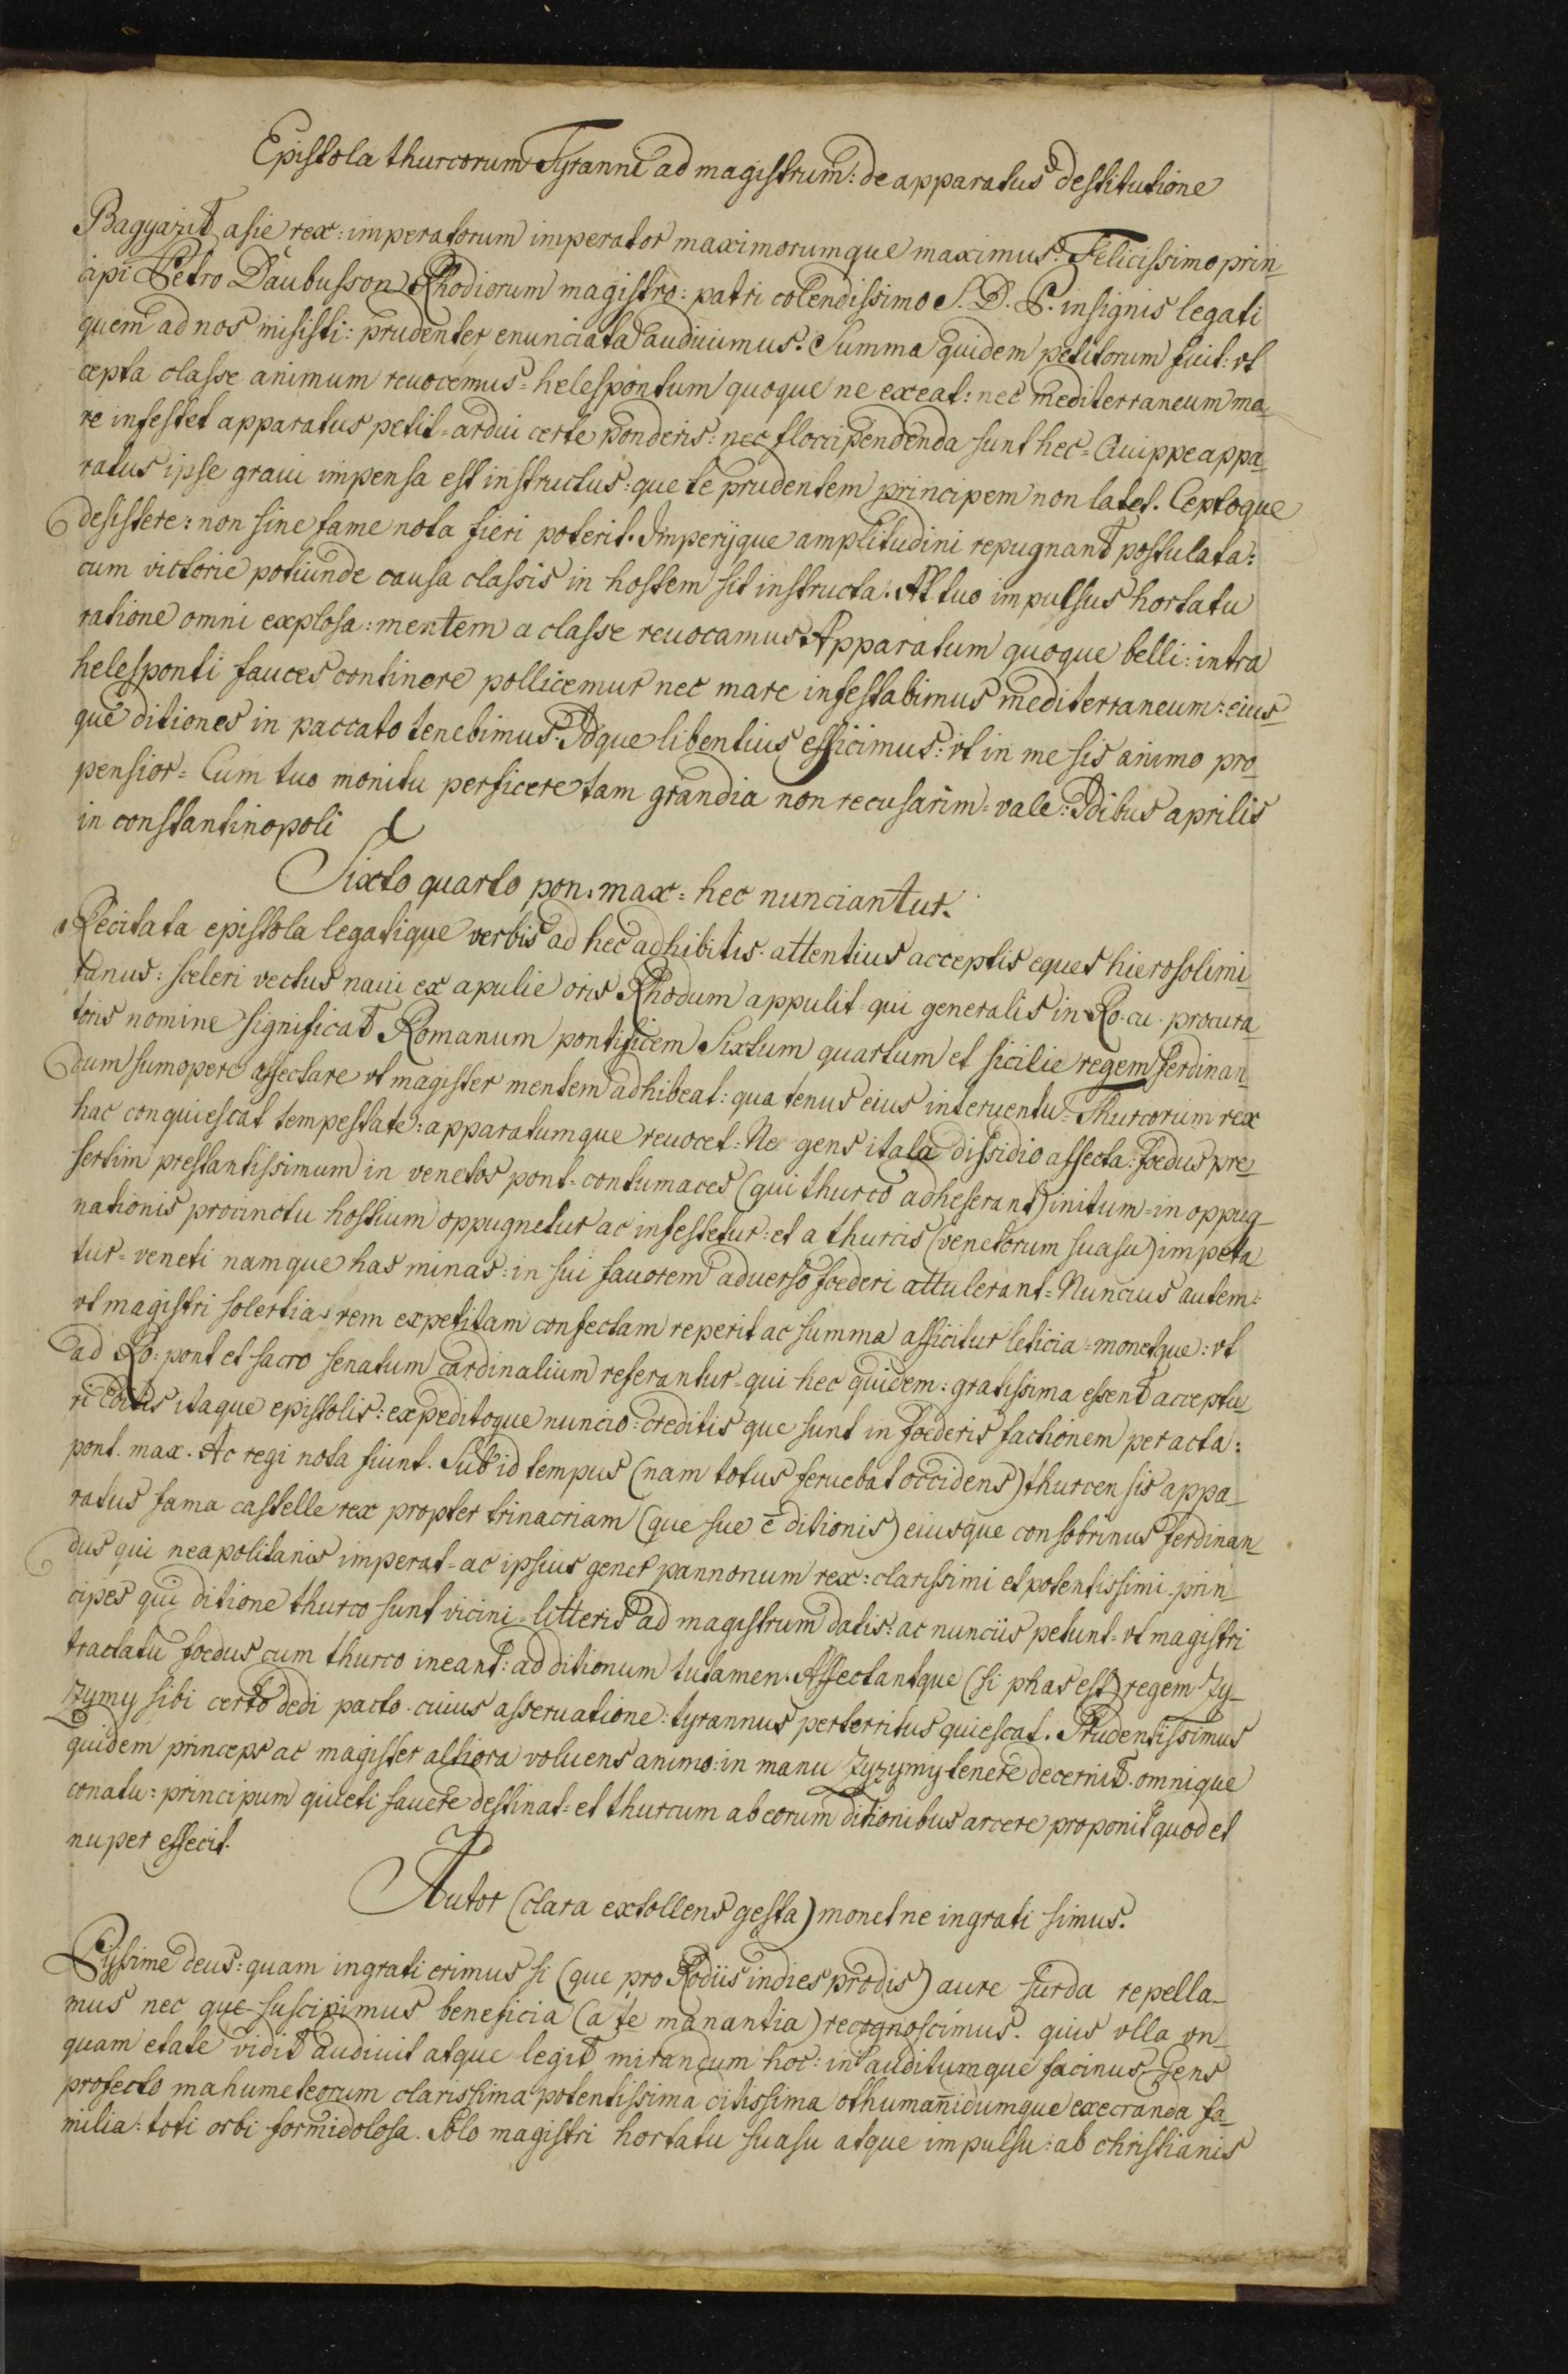 Epistola thurcorum Tyranni ad magistrum: de apparatus destitutione
Bagyazit asie rex: imperatorum imperator maximorumque maximus: Felicissimo prin-
cipi Petro Daubusson Rhodiorum magistro: patri colendissimo S. D. P. insignis legati
quem ad nos misisti: prudenter enunciata audiuimus. Summa quidem petitorum fuit: vt
cepta classe animum reuocemus= helespontum quoque ne exeat: nec mediterraneum ma-
re infestet apparatus petit= ardui certe ponderis: nec floccipendenda sunt hec= Quippe appa-
ratus ipse graui impensa est instructus: que te prudentem principem non latet. Ceptoque
desistere: non sine fame nota fieri poterit. Imperijque amplitudini repugnant postulata:
cum victorie potiunde causa classis in hostem sit instructa. At tuo impulsus hortatu
ratione omni explosa: mentem a classe reuocamus Apparatum quoque belli: intra
helesponti fauces continere pollicemur nec mare infestabimus mediterraneum: eius-
que ditiones in paccato tenebimus. Idque libentius efficimus: vt in me sis animo pro-
pensior= Cum tuo monitu perficere tam grandia non recusarim= vale: Idibus aprilis
in constantinopoli
Sixto quarto pon. max= hec nunciantur.
Recitata epistola legatique verbis ad hec adhibitis. attentius acceptis eques hierosolimi-
tanus: sceleri vectus naui ex apulie oris Rhodum appulit= qui generalis in Ro. cu. procura-
toris nomine significat Romanum pontificem Sixtum quartum et sicilie regem ferdinan-
dum sumopere affectare vt magister mentem adhibeat: qua tenus eius interuentu= Thurcorum rex
hac conquiescat tempestate: apparatumque reuocet= Ne gens itala dissidio affecta: foedus pre-
sertim prestantissimum in venetos pont. contumaces (qui thurco adheserant) initum= in oppug-
nationis procinctu hostium oppugnetur ac infestetur: et a thurcis (venetorum suasu) impeta-
tur= veneti namque has minas: in sui fauorem aduerso foederi attulerant= Nuncius autem:
vt magistri solertia rem expetitam confectam reperit ac summa afficitur leticia= monetque: vt
ad Ro: pont et sacro senatum cardinalium referantur= qui hec quidem: gratissima essent acceptu-
ri Editis itaque epistolis: expeditoque nuncio: creditis que sunt in foederis factionem peracta:
pont. max. Ac regi nota fiunt. Sub id tempus (nam totus feruebat occidens) thurcensis appa-
ratus fama castelle rex propter trinacriam (que sue ē ditionis) eiusque consobrinus ferdinan-
dus qui neapolitanis imperat= ac ipsius gener pannonum rex: clarissimi et potentissimi prin-
cipes qui ditione thurco sunt vicini= litteris ad magistrum datis: ac nunciis petunt= vt magistri
tractatu foedus cum thurco ineant: ad ditionum tutamen. Affectantque (si phas est) regem Zy-
zymy sibi certo dedi pacto. cuius asseruatione: tyrannus perterritus quiescat. Prudentissimus
quidem princeps ac magister altiora voluens animo: in manu Zyzymy tenere decernit. omnique
conatu: principum quieti fauere destinat= et thurcum ab eorum ditionibus arcere proponit quod et
nuper effecit.
Autor (clara extollens gesta) monet ne ingrati simus.
Pijssime deus: quam ingrati erimus si (que pro Rodiis indies prodis) aure surda repella-
mus nec que suscipimus beneficia (a te manantia) recognoscimus. quis vlla vn-
quam etate vidit audiuit atque legit mirandum hoc: inauditumque facinus= Gens
profecto mahumeteorum clarissima potentissima citissima othumañidumque execranda fa-
milia: toti orbi formidolosa. Solo magistri hortatu suasu atque impulsu: ab christianis